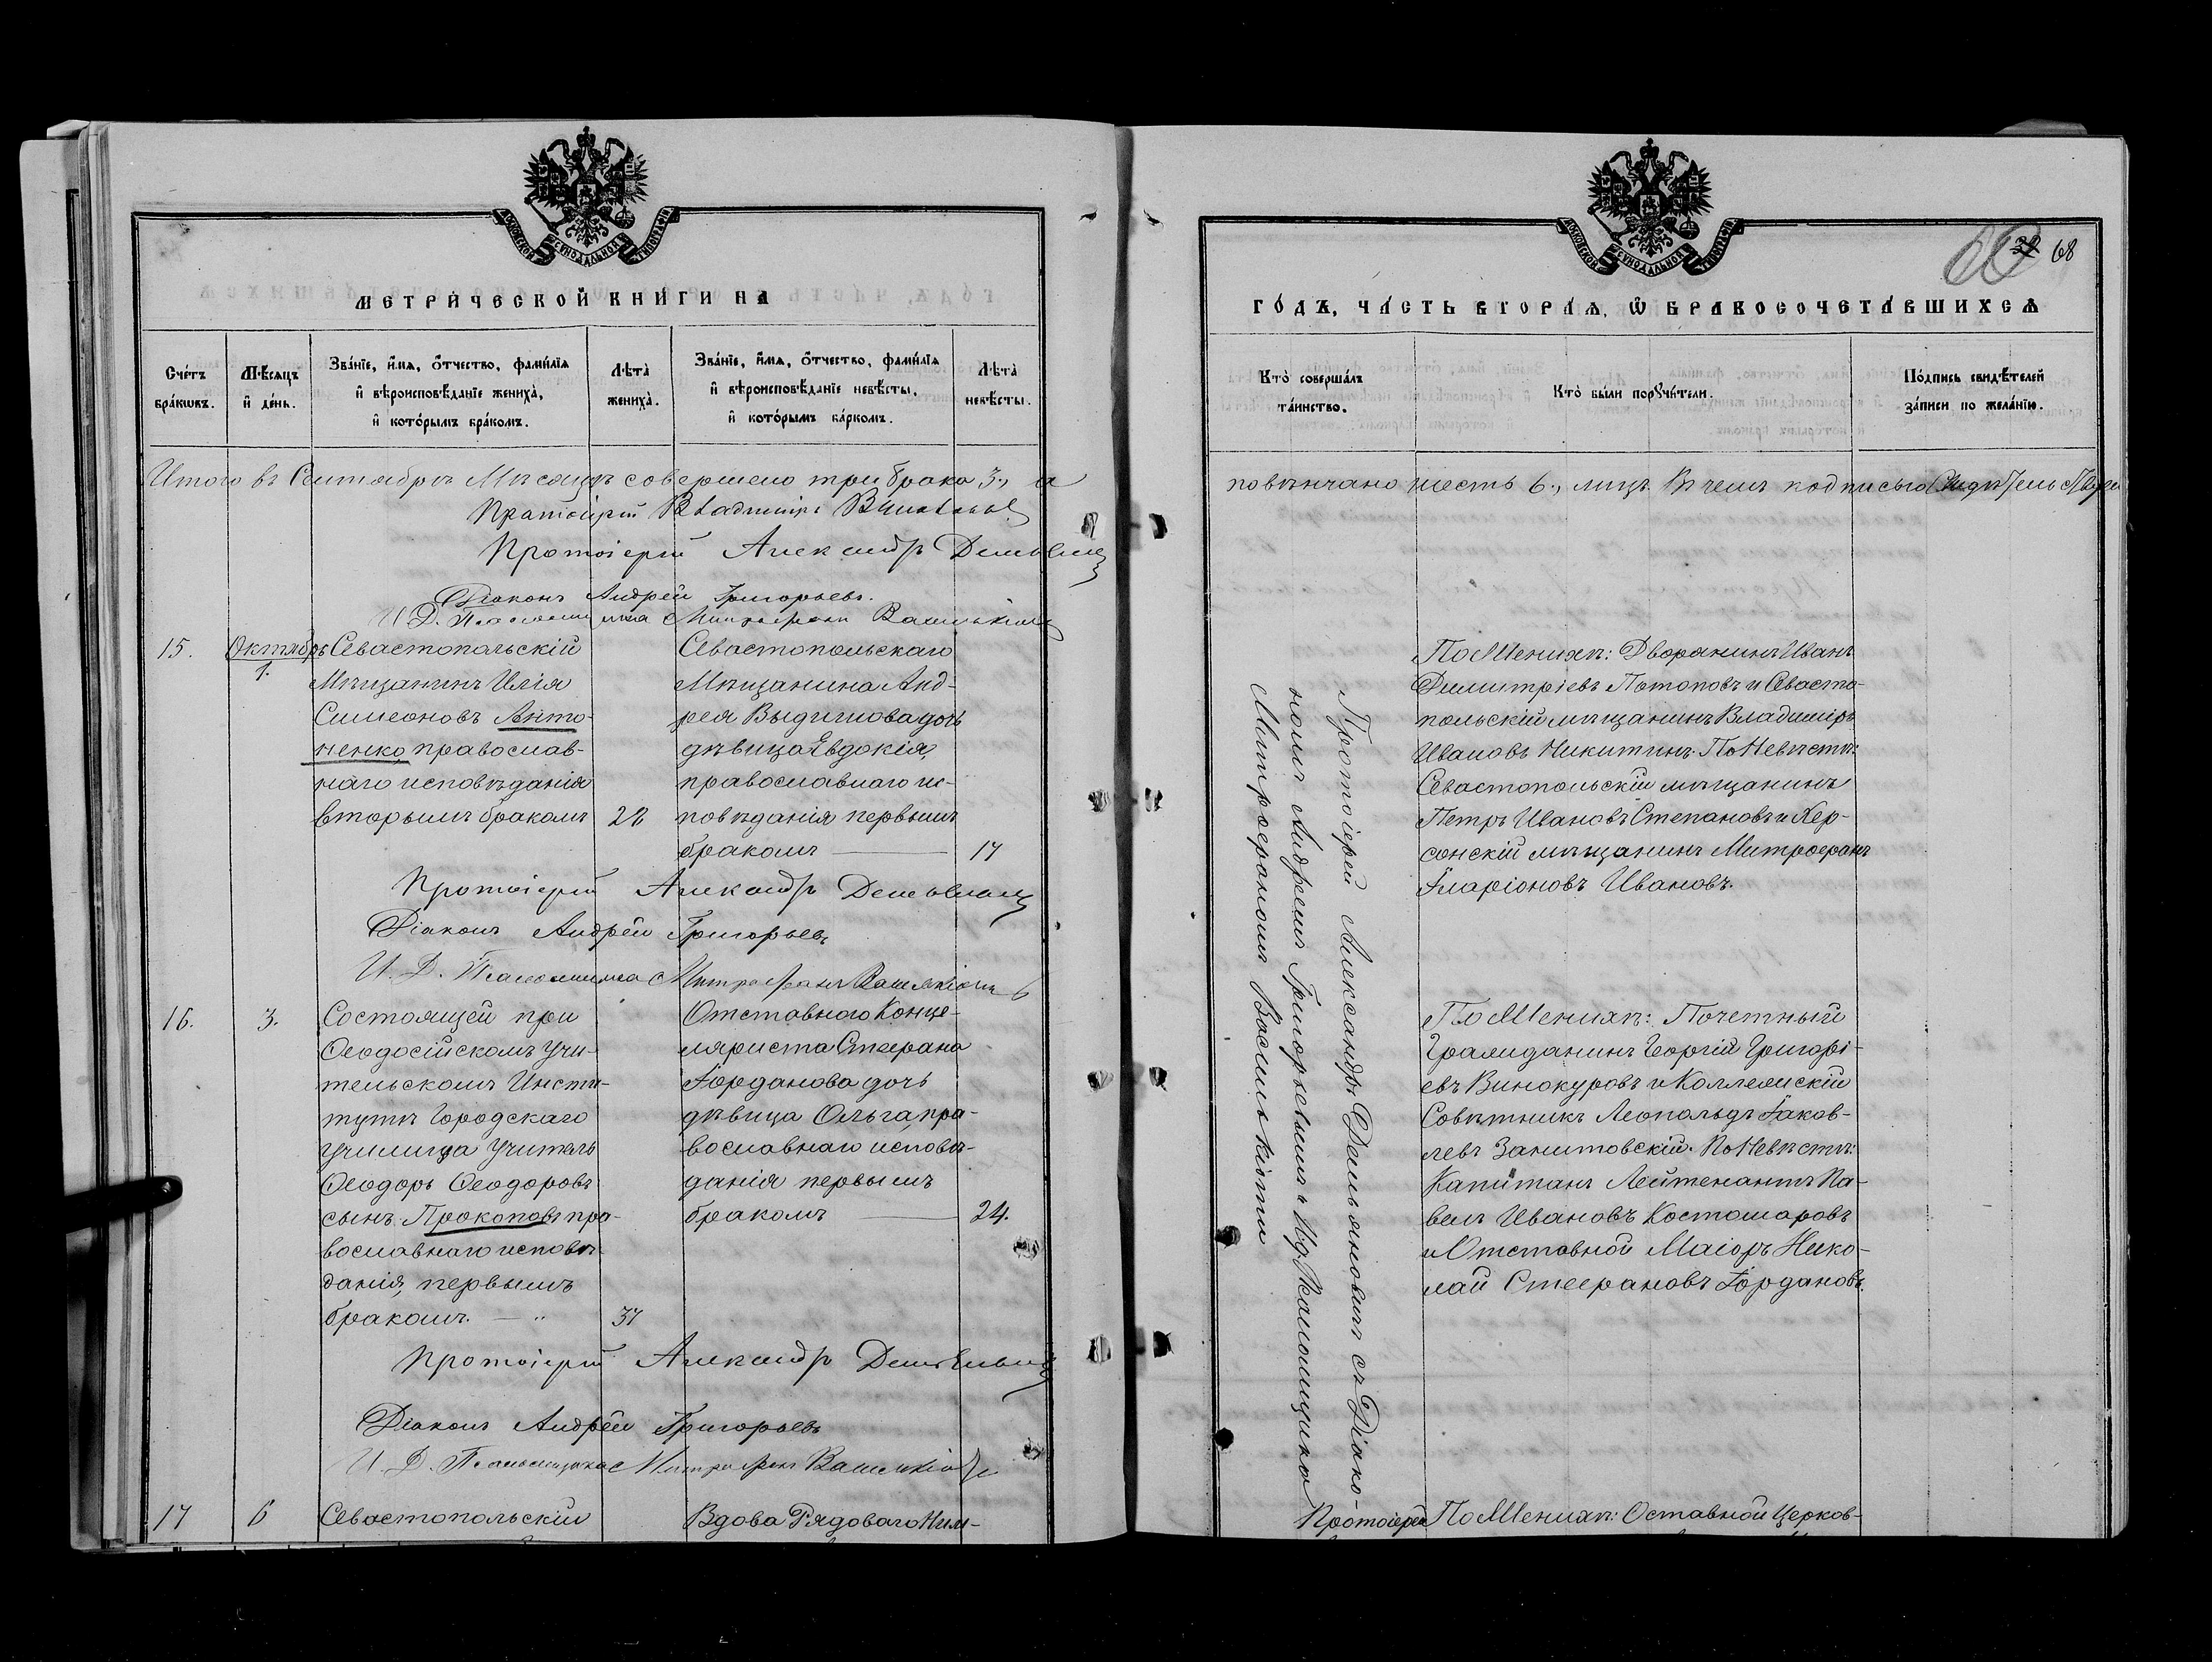 МОСКОВСКОЙ СѴНОДАЛЬНОЙ ТИПОГРАФІИ
МЕТРИ́ЧЕСКОЙ КНИ́ГИ НА
Сче́тъ бра́кѡвъ.
Мѣ́сяцъ и҆ де́нь.
Зва́нїе, и҆́мя, ѻ҆́тчество, фами́лїя
и҆ вѣроисповѣ́данїе жениха̀,
и҆ кото́рымъ бра́комъ.
Лѣта̀ жениха̀.
Зва́нїе, и҆́мя, ѻ҆́тчество, фами́лїя
и҆ вѣроисповѣ́данїе невѣ́сты,
и҆ кото́рымъ ба́ркомъ.
Лѣта̀ невѣ́сты.
Итого въ Сентябрѣ Мѣсяцѣ совершено три брака 3., а
Протоіерей Владиміръ
Протоіерей Александръ Демьяновичъ
Діаконъ Андрей Григорьевъ.
И. Д. Псаломщика Митрофанъ Василькіоти
15.
Октябрь
1.
Севастопольскій
Мѣщанинъ Илія
Симеоновъ Анто-
ненко, православ-
наго исповѣданія
вторымъ бракомъ
28
Севастопольскаго
Мѣщанина Анд-
рея Выдигнова дочь
дѣвица Евдокія,
православнаго ис-
повѣданія первымъ
бракомъ
17
Протоіерей Александръ Демьяновичъ
Діаконъ Андрей Григорьевъ
И. Д. Псаломщика Митрофанъ Василькіоти
16.
3.
Состоящей при
Ѳеодосійскомъ Учи-
тельскомъ Инсти-
тутѣ Городскаго
училища Учитель
Ѳеодоръ Ѳеодоровъ
сынъ Прокоповъ пра-
вославнаго исповѣ-
данія, первымъ
бракомъ.
37
Отставного Канце-
ляриста Стефана
Іорданова дочь
дѣвица Ольга, пра-
вославнаго исповѣ-
данія первымъ
бракомъ
24.
Протоіерей Александръ Демьяновичъ
Діаконъ Андрей Григорьевъ
И. Д. Псаломщика Митрофанъ Василькіоти
17
6
Севастопольскій
Вдова Рядового Ним-
МОСКОВСКОЙ СѴНОДАЛЬНОЙ ТИПОГРАФІИ
66 39 68
ГО́ДЪ, ЧА́СТЬ ВТОРА́Я, Ѽ БРАКОСОЧЕТА́ВШИХСѦ
Кто̀ соверша́лъ та́инство.
Кто̀ бы́ли порꙋчи́тели.
По́дпись свидѣ́телей за́писи по жела́нїю.
повѣнчано шесть 6., лицъ. Въ чемъ подписью
Протоіерей Александръ Демьяновичъ съ Діако-
номъ Андреемъ Григорьевымъ и И.д. Псаломщика
Митрофаномъ Василькіоти
По Женихѣ: Дворянинъ Иванъ
Димитріевъ Потоповъ и Севасто-
польскій мѣщанинъ Владиміръ
Ивановъ Никитинъ. По Невѣстѣ:
Севастопольскій мѣщанинъ
Петръ Ивановъ Степановъ и Хер-
сонскій мѣщанинъ Митрофанъ
Иларіоновъ Ивановъ.
По Женихѣ: Почетный
Гражданинъ Георгій Григорі-
евъ Винокуровъ и Коллежскій
Совѣтникъ Леопольдъ Іаков-
левъ Занитовскій. По Невѣстѣ:
Капитанъ Лейтенантъ Па-
велъ Ивановъ Костомаровъ
и Отставной Маіоръ Нико-
лай Стефановъ Іордановъ.
Протоіерей
По Женихѣ: Оставной Церков-